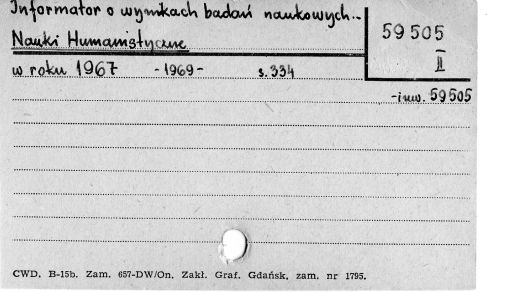 Informator o wynikach badań naukowych...
59505
Nauki Humanistyczne
II
w roku 1967 - 1969 - s. 334
- inw. 59505
CWD. B-15b. Zam. 657-DW/On. Zakł. Graf. Gdańsk, zam. nr 1795.